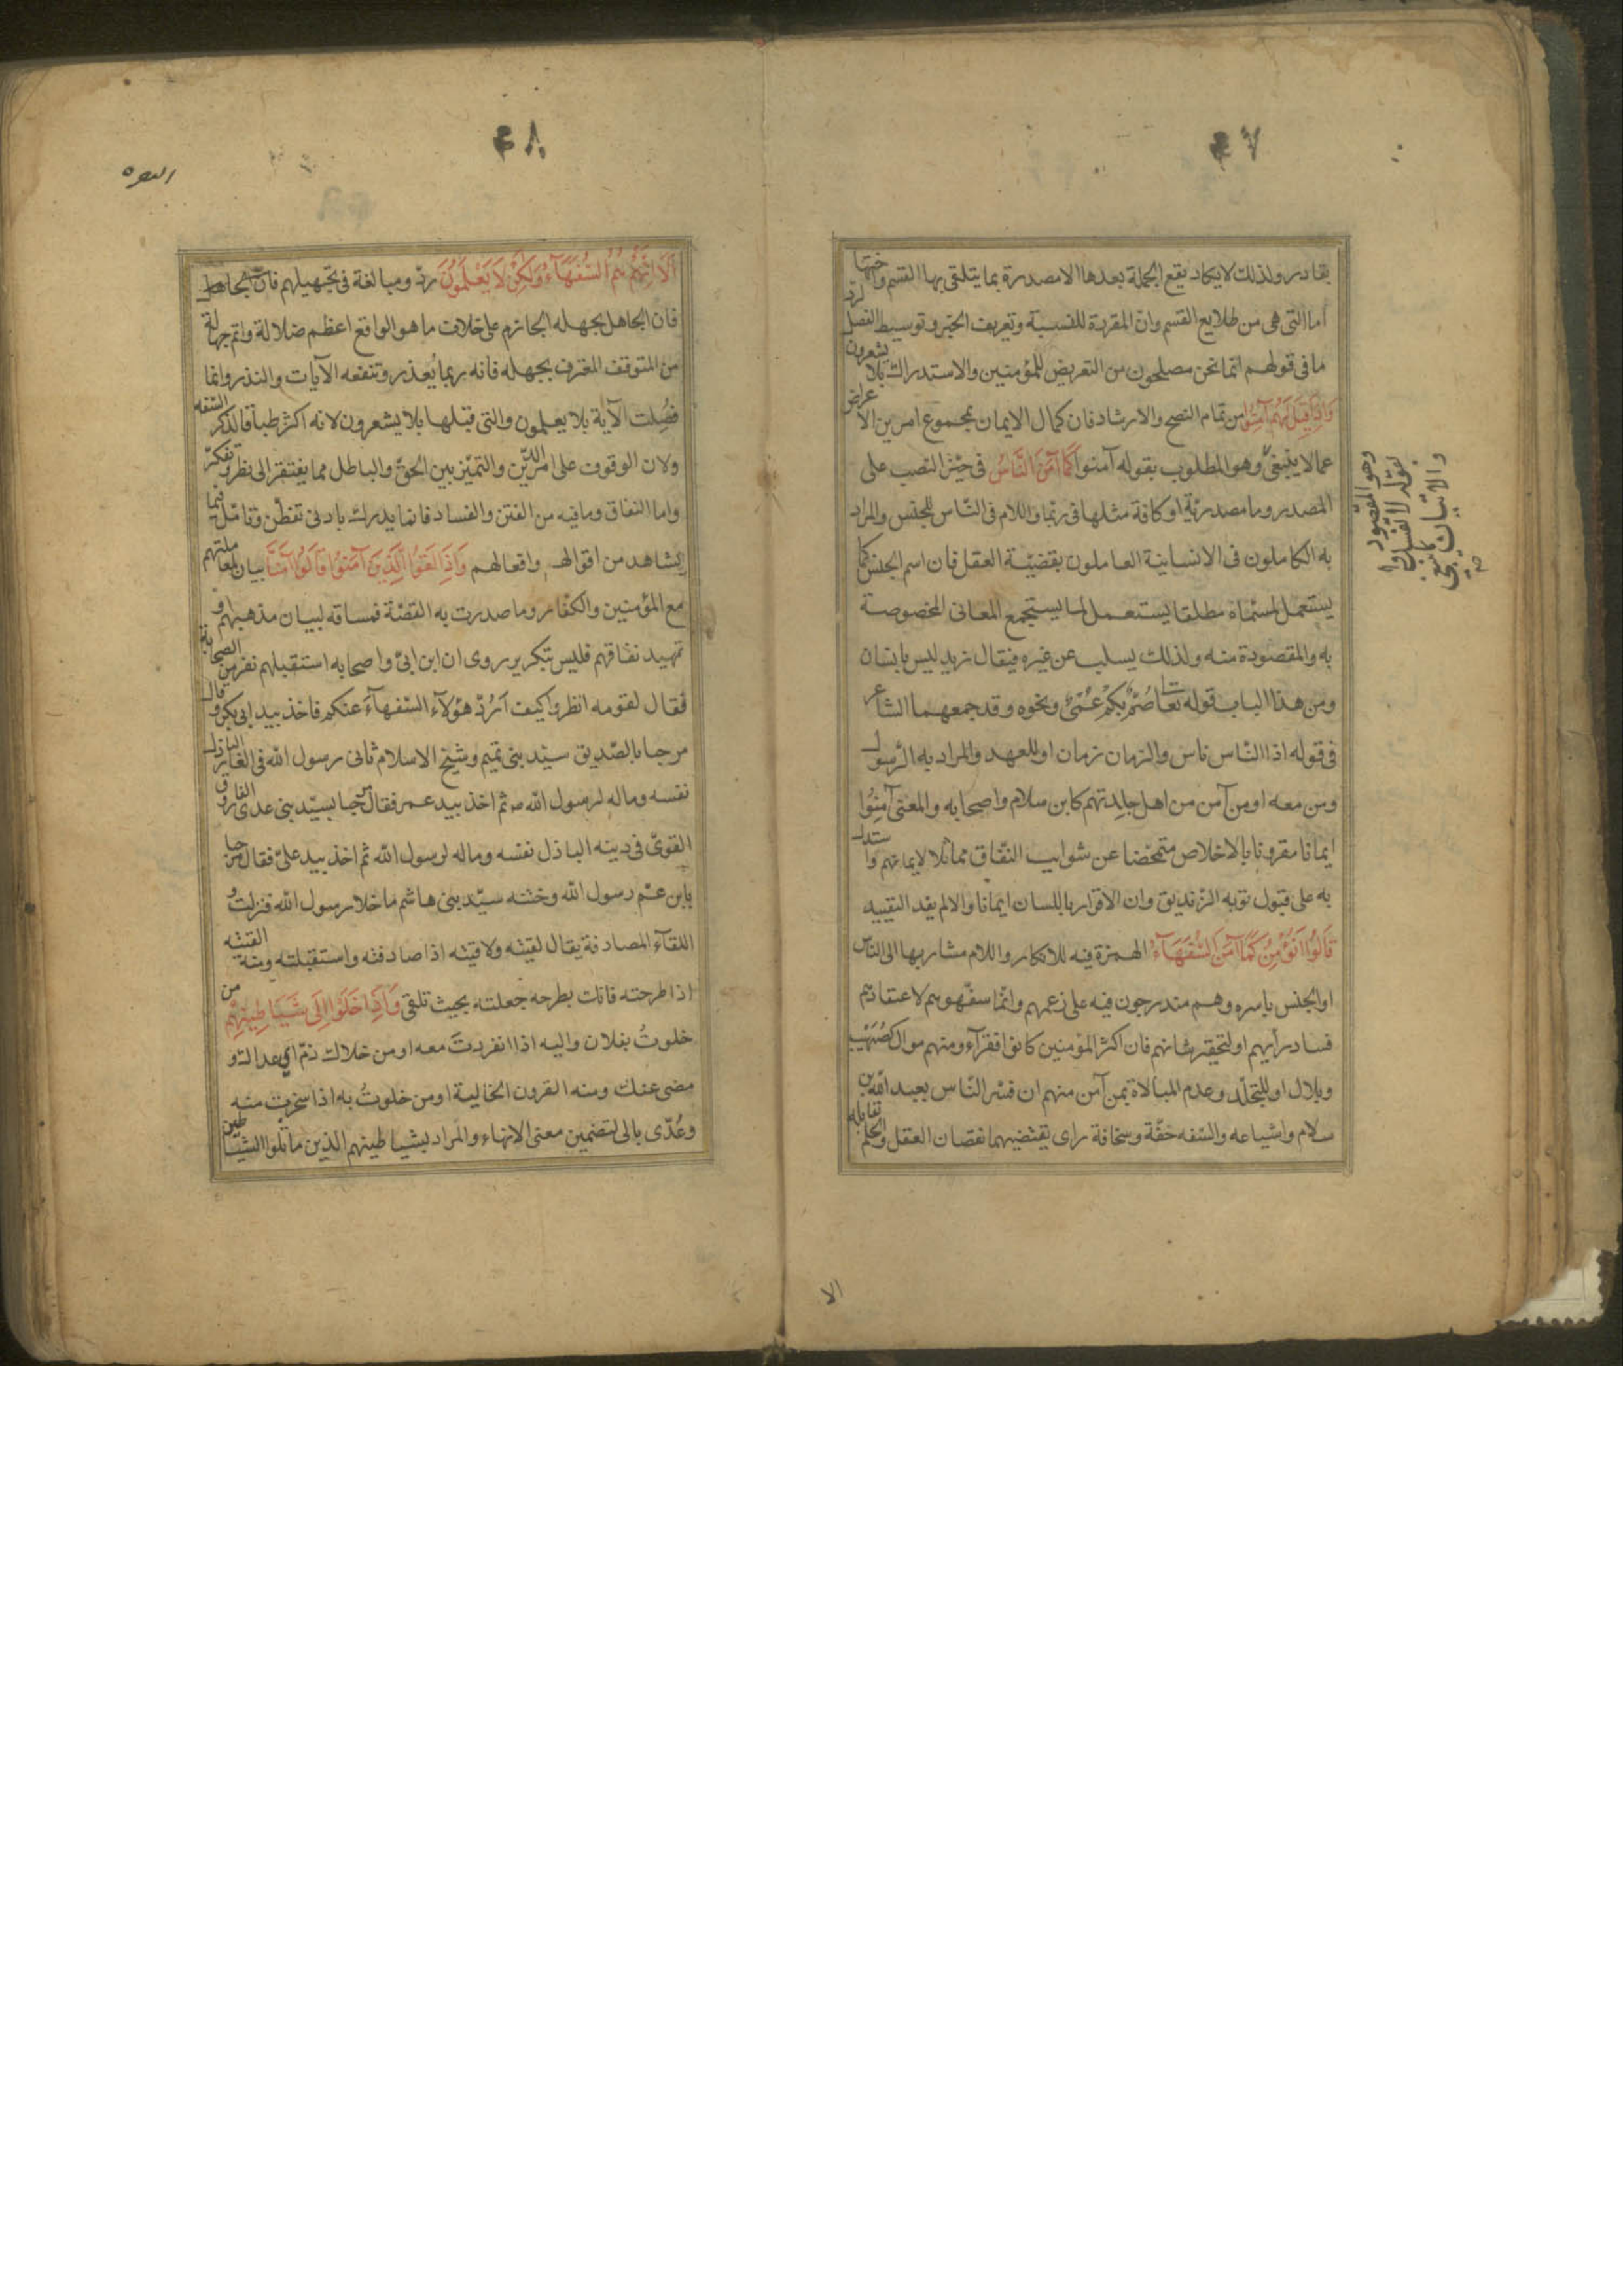 ٤٧
بقادر ولذلك لا يكاد يقع الجملة بعدها الا مصدرة بما يتلقى بها القسم واختها
أما التى هى من طلايع القسم وانّ المقررة للنسبة وتعريف الخبر وتوسيط الفصل لردّ
ما فى قولهم انما نحن مصلحون من التعريض للمؤمنين والاستدراك بلا يشعرون
وَاِذَا قِيلَ لَهُمْ آمِنُوا من تمام النصح والارشاد فان كمال الايمان بمجموع امرين الاعراض
عما لا ينبغى وهو المطلوب بقوله آمنوا كَمَا آمَنَ النَّاسُ فى حيّز النصب على
المصدر وما مصدريّة او كافة مثلها فى ربّما واللام فى النّاس للجنس والمراد
به الكاملون فى الانسانية العاملون بقضيّة العقل فان اسم الجنس كما
يستعمل لمسمّاه مطلقا يستعمل لما يستجمع المعانى المخصوصة
به والمقصودة منه ولذلك يسلب عن غيره فيقال زيد ليس بانسان
ومن هذا الباب قوله تعا صُمٌّ بكمٌ عُمْىٌ ونحوه وقد جمعهما الشاعر
فى قوله اذ الناس ناس والزمان زمان او للعهد والمراد به الرّسول
ومن معه او من آمن من اهل جلدتهم كابن سلام واصحابه والمعنى آمِنُوا
ايمانا مقرونا بالاخلاص متمحّضا عن شوايب النّفاق مماثلا لايمانهم واستدل
به على قبول توبه الزنديق وان الاقرار باللسان ايمانا والا لم يفد التقييد
قَالُوا اَنُؤْمِنُ كَمَا آمَنَ السُّفَهَآءُ الهمزة فيه للانكار واللام مشار بها الى الناس
او الجنس باسره وهم مندرجون فيه على زعمهم وانّما سفّهوهم لاعتقادهم
فساد رأيهم او لتحقير شانهم فان اكثر المؤمنين كانوا فقرآء ومنهم موال كصُهَيْب
وبلال او للتجلّد وعدم المبالاة بمن آمن منهم ان فسّر النّاس بعبد الله بن
سلام واشياعه والسّفه خفّة وسخافة راى يقتضيهما نقصان العقل والحلم تقابله
وهو المقصود
بقوله لا تفسدوا
والاتيان بما ينبغى
صح
الا
٤٨
البقره
اَلَا اِنَّهُمْ هُمُ السُّفَهَآءُ وَلَكِنْ لَا يَعْلَمُونَ ردّ ومبالغة فى تجهيلهم
فان الجاهل بجهله الجازم على خلاف ما هو الواقع اعظم ضلالة واتم جهالة
من المتوقف المعترف بجهله فانه ربما يُعذر وتنفعه الآيات والنذر وانّما
فصّلت الآية بلا يعلمون والتى قبلها بلا يشعرون لانه اكثر طباقا لذكر السّفه
ولان الوقوف على امر الدّين والتميّز بين الحقّ والباطل مما يفتقر الى نظر وتفكّر
واما النفاق وما فيه من الفتن والفساد فانما يدرك بادنى تفطّن وتامّل فيما
يشاهد من اقوالهم وافعالهم وَاِذَا لَقُوا الَّذِينَ آمَنُوا قَالُوا آمَنَّا بيان لمعاملتهم
مع المؤمنين والكفّار وما صدرت به القصّة فمساقه لبيان مذهبهم و
تمهيد نفاقهم فليس بتكرير روى ان ابن ابىّ واصحابه استقبلهم نفر من الصحابة
فقال لقومه انظروا كيف اردّ هؤلآء السّفهآء عنكم فاخذ بيد ابى بكر وقال
مرحبا بالصّديق سيّد بنى تميم وشيخ الاسلام ثانى رسول الله فى الغار الباذل
نفسه وماله لرسول الله ص ثم اخذ بيد عمر فقال مرحبا بسيّد بنى عدى الفاروق
القوىّ فى دينه الباذل نفسه وماله لرسول الله ثم اخذ بيد علىّ فقال مرحبا
يا بن عمّ رسول الله وختنه سيّد بنى هاشم ما خلا رسول الله فنزلت و
اللقآء المصادفة يقال لقيته ولاقيته اذا صادفته واستقبلته ومنه القيته
اذا طرحته فانك بطرحه جعلته بحيث تلقى وَاِذَا خَلَوْا اِلَى شَيَاطِينِهِمْ من
خلوتُ بفلان واليه اذا انفردتَ معه او من خلاك ذمّ اى عداك و
مضى عنك ومنه القرون الخالية او من خلوتُ به اذا سخرت منه
وعُدّى بالى لتضمين معنى الانهاء والمراد بشياطينهم الذين ماثلوا الشياطين